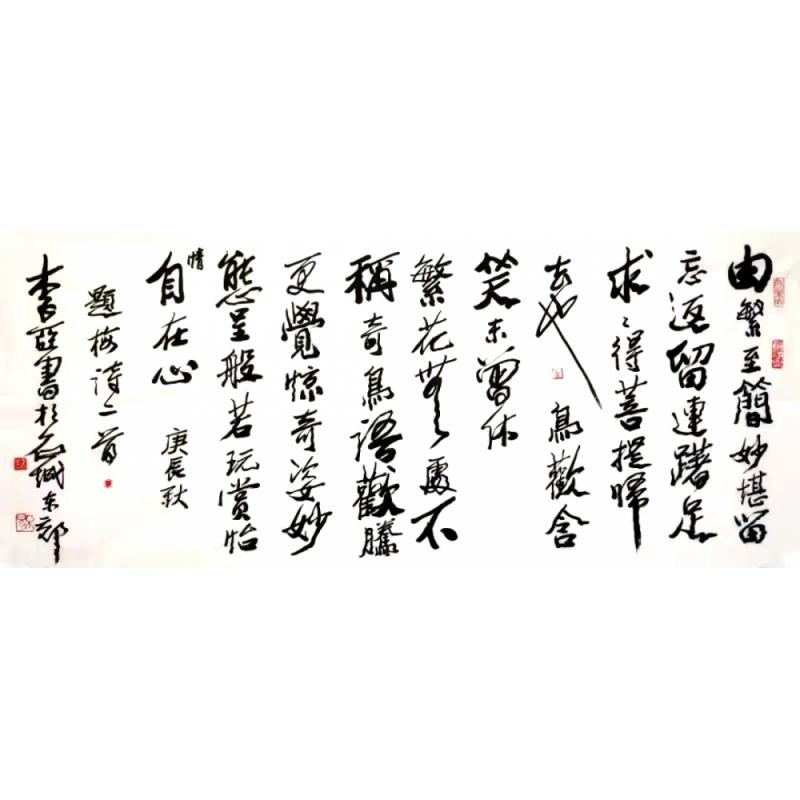 由繁至簡妙堪留
忘返留連躇足
求之得菩提歸
去也 鳥歡含
笑未曾休
繁花無處不
稱奇鳥語歡騰
更覺惊奇姿妙
態呈般若玩賞怡
情
自在心 庚辰秋
題梅詩二首
書於石城东郊